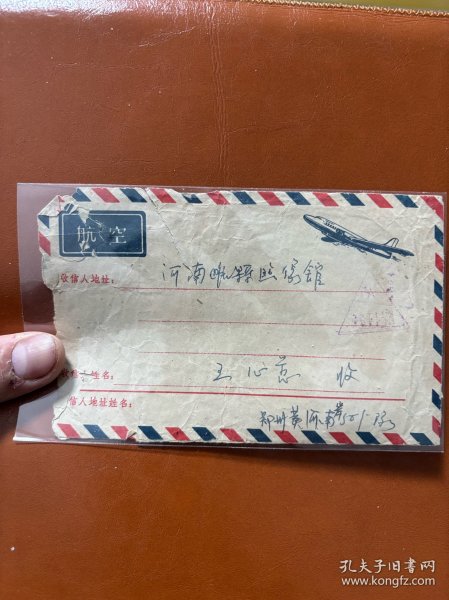 航空
收信人地址：
河南 县照像馆
收信人姓名：
王心 收
信人地址姓名：
郑州黄河南
孔夫子旧书网
www.kongfz.com